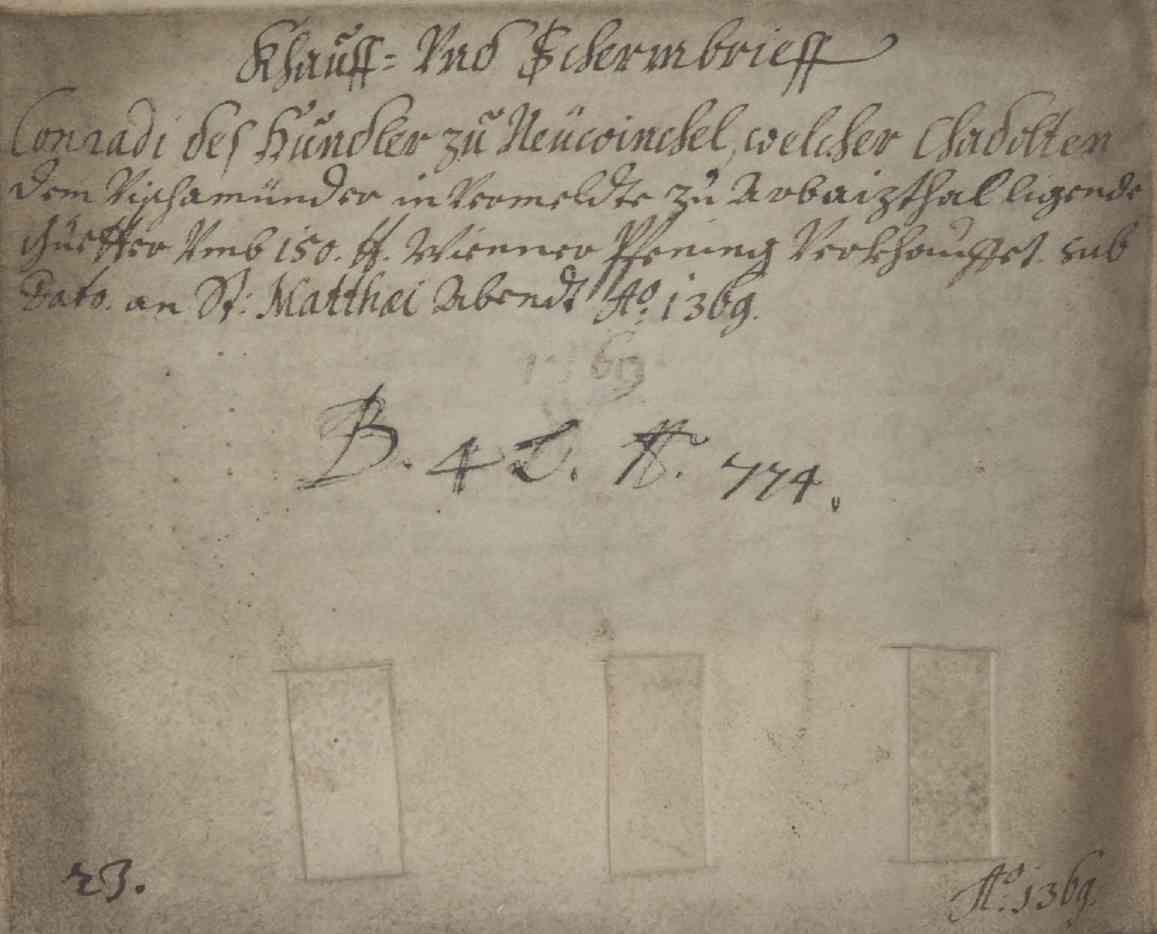 Khauff- Vnd Schermbrieff
Conradi des Hündler zu Neüwinckel, welcher Chadolten
dem Vischamünder in Vermeldte zu Arbaizthal ligende
Güetter vmb 150. ₰. Wienner Pfening Verkhauffet. sub
Dato. an St: Matthæi Abendt Aō: 1369.
1369
B. 4 L. N. 774.
23.
Aō: 1369.